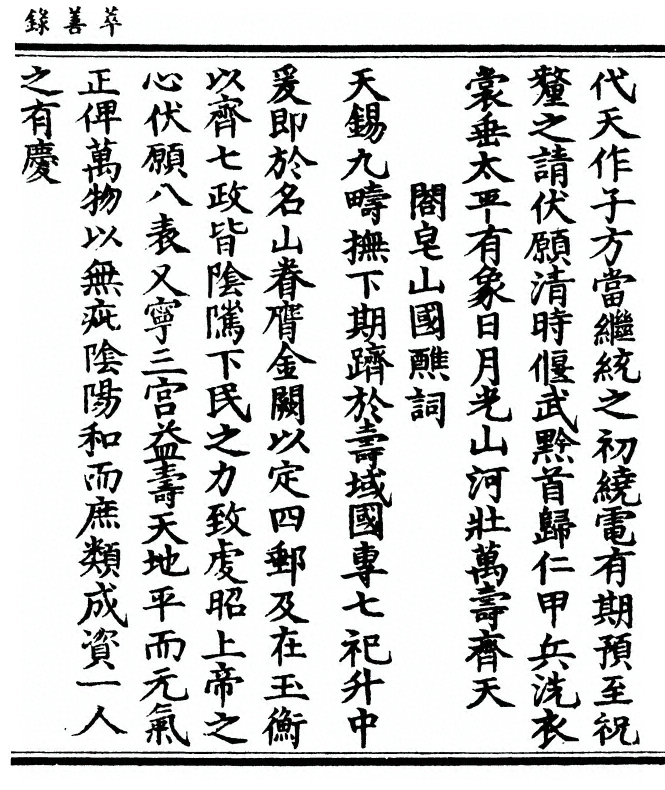 萃善錄
代天作子方當繼統之初繞電有期預至祝
釐之請伏願清時偃武黔首歸仁甲兵洗衣
裳垂太平有象日月光山河壯萬壽齊天
閤皂山國醮詞
天錫九疇撫下期躋於壽域國專七祀升中
爰即於名山眷膺金闕以定四郵及在玉衡
以齊七政皆陰隲下民之力致虔昭上帝之
心伏願八表乂寧三宮益壽天地平而元氣
正俾萬物以無疵陰陽和而庶類成資一人
之有慶